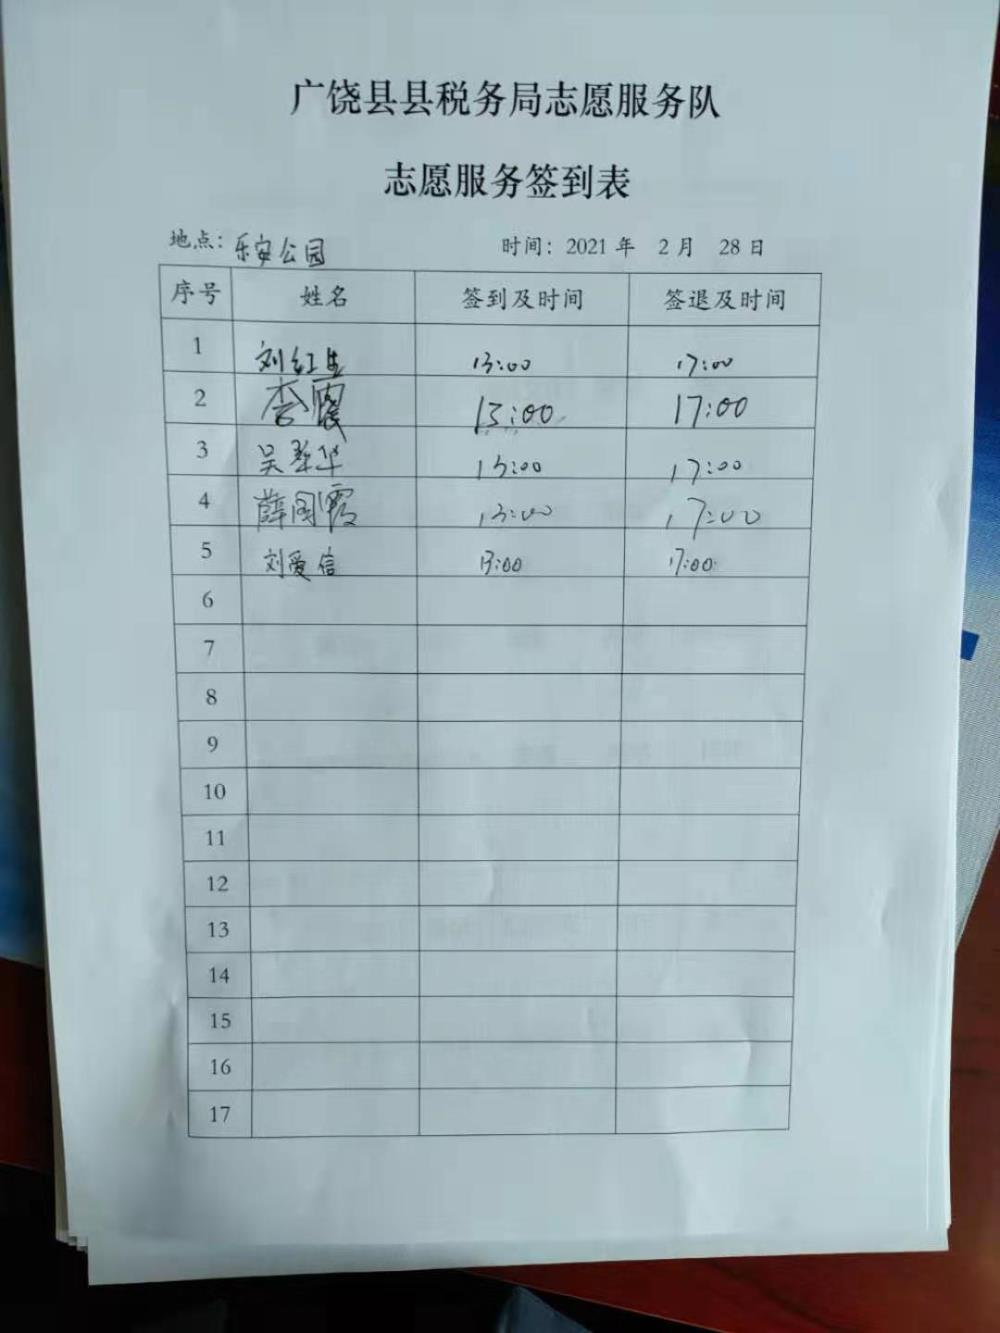 广饶县县税务局志愿服务队
志愿服务签到表
地点：乐安公园 时间：2021 年 2 月 28 日
序号 姓名 签到及时间 签退及时间
1 刘红生 13:00 17:00
2 李霞 13:00 17:00
3 吴 华 13:00 17:00
4 薛国霞 13:00 17:00
5 刘爱信 13:00 17:00
6
7
8
9
10
11
12
13
14
15
16
17